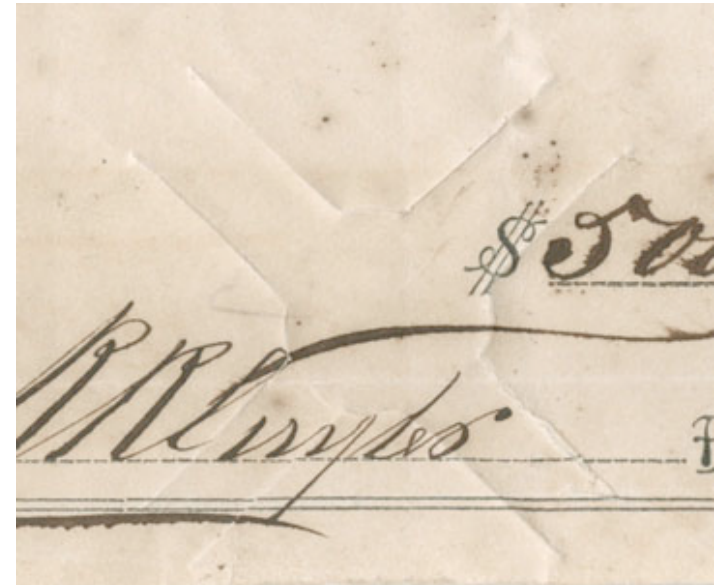 $ 500
R R Cuyler